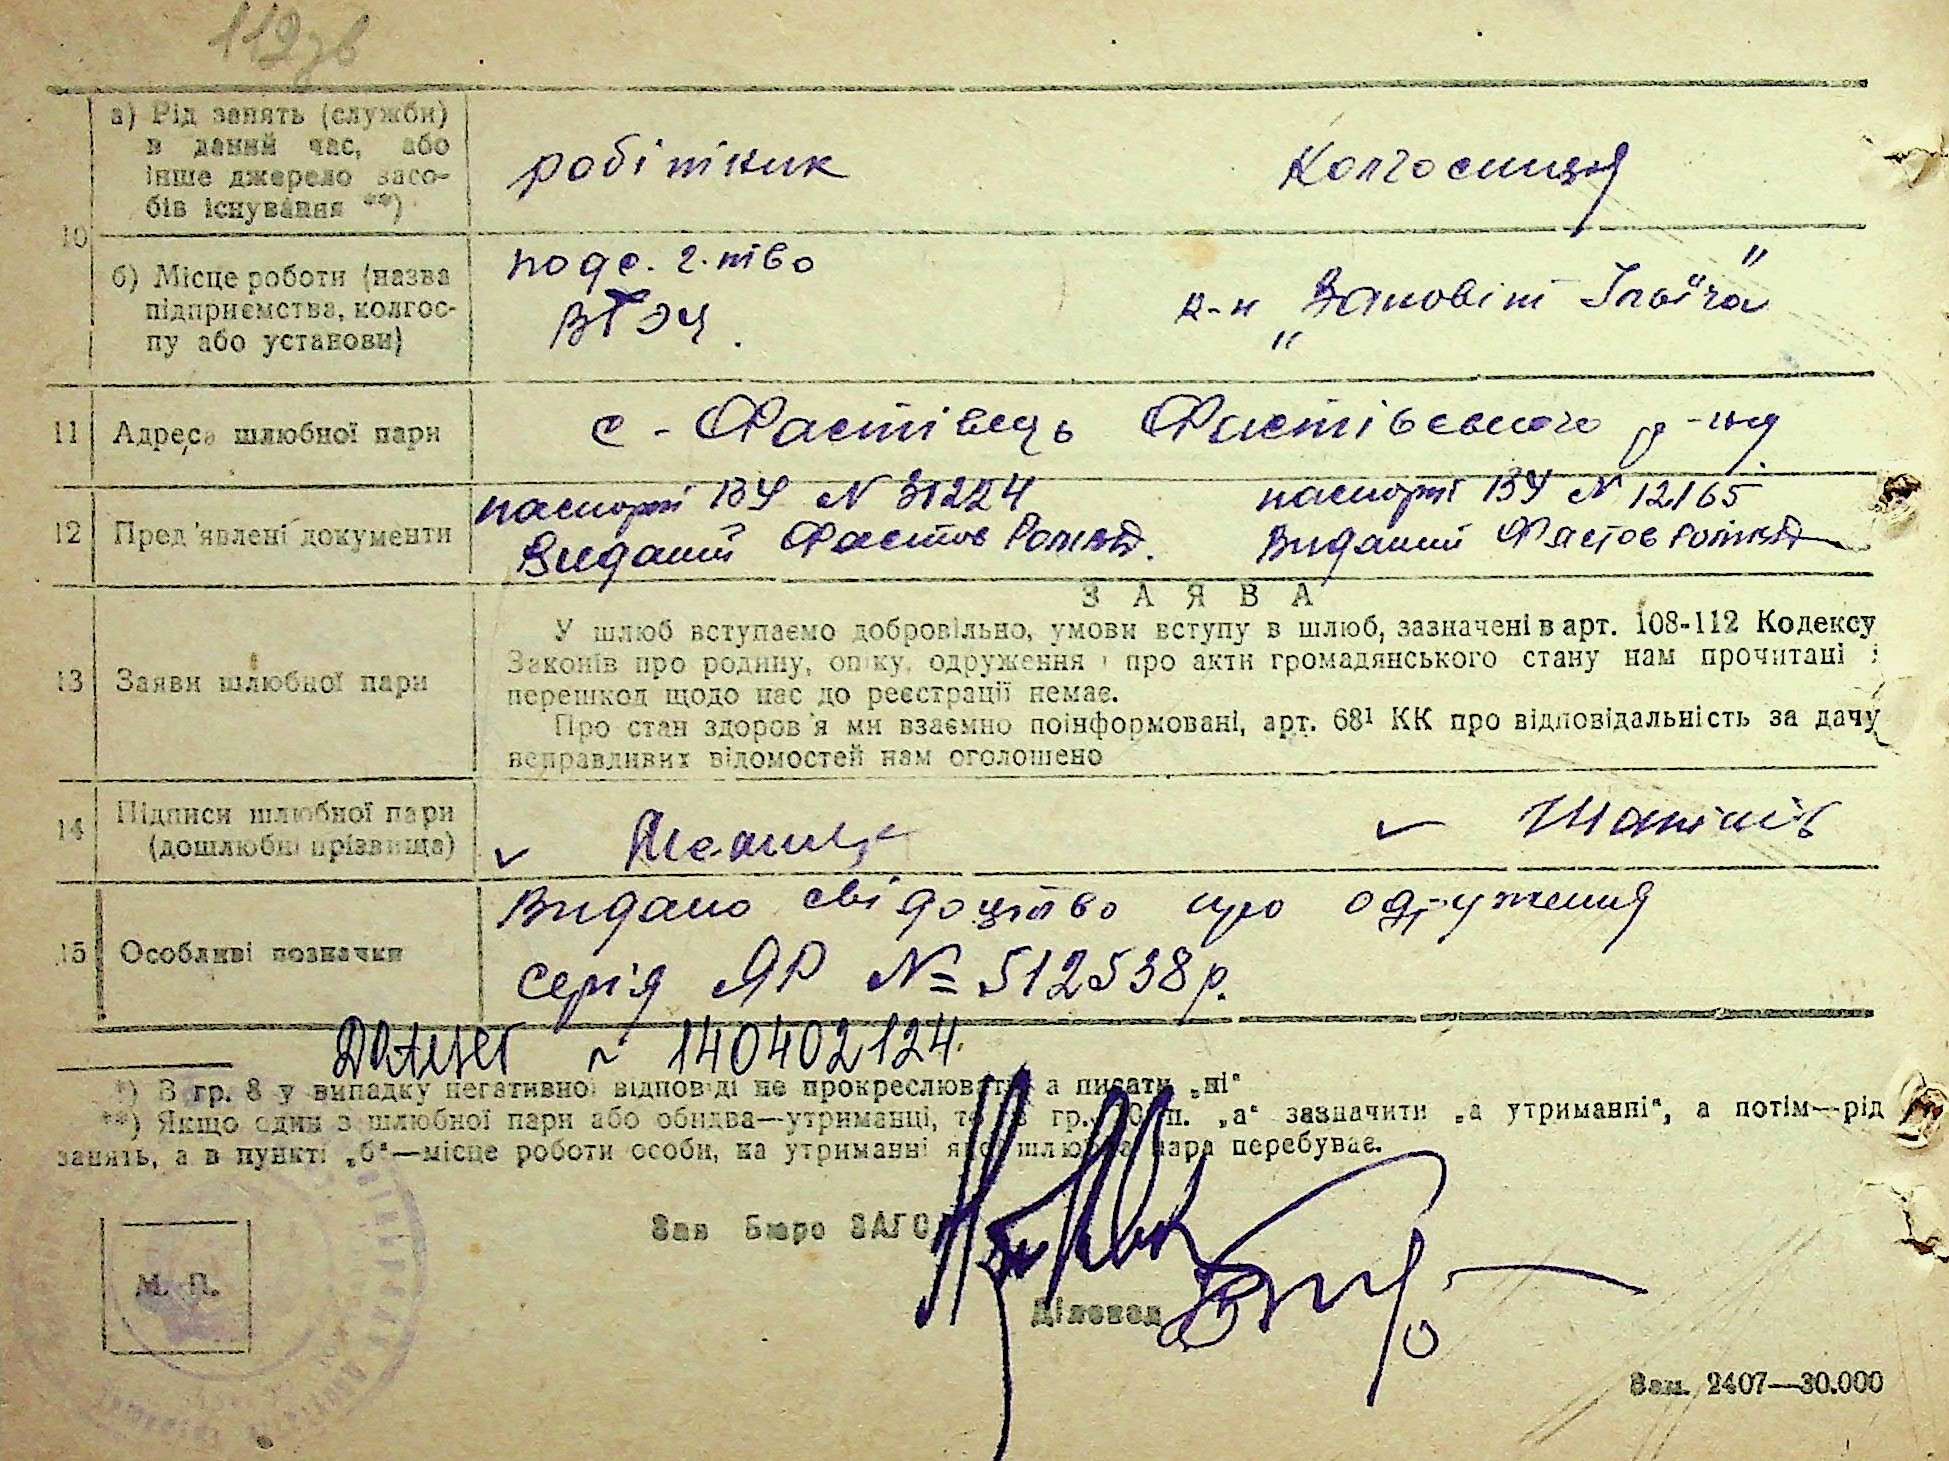 112зв
а) Рід занять (служби)
в даний час, або
інше джерело засо-
бів існування **)
робітник
Колгоспниця
10
б) Місце роботи (назва
підприємства, колгос-
пу або установи)
подс. г-тво
к-п „Заповіт Ілліча"
11 Адреса шлюбної пари
с-Фастівець Фастівського р-ну
12 Пред'явлені документи
паспорт ІЗУ N 31224
Виданий Фастов
паспорт ІЗУ N 12165
Виданий Фастов
ЗАЯВА
13 Заяви шлюбної пари
У шлюб вступаємо добровільно, умови вступу в шлюб, зазначені в арт. 108-112 Кодексу
Законів про родину, опіку, одруження і про акти громадянського стану нам прочитані і
перешкод щодо нас до реєстрації немає.
Про стан здоров'я ми взаємно поінформовані, арт. 68¹ КК про відповідальність за дачу
неправдивих відомостей нам оголошено
14 Підписи шлюбної пари
(дошлюбні прізвища)
15 Особливі позначки
Видано свідоцтво про одруження
серія ЯР № 512538 р.
N 140402124.
*) В гр. 8 у випадку негативної відповіді не прокреслювати, а писати „ні"
**) Якщо один з шлюбної пари або обидва—утриманці, то в гр. 10 п. „а" зазначити „а утриманні", а потім—рід
занять, а в пункті „б"—місце роботи особи, на утриманні якої шлюбна пара перебуває.
Зав Бюро ЗАГС
М. П.
Діловод
Зам. 2407—30.000